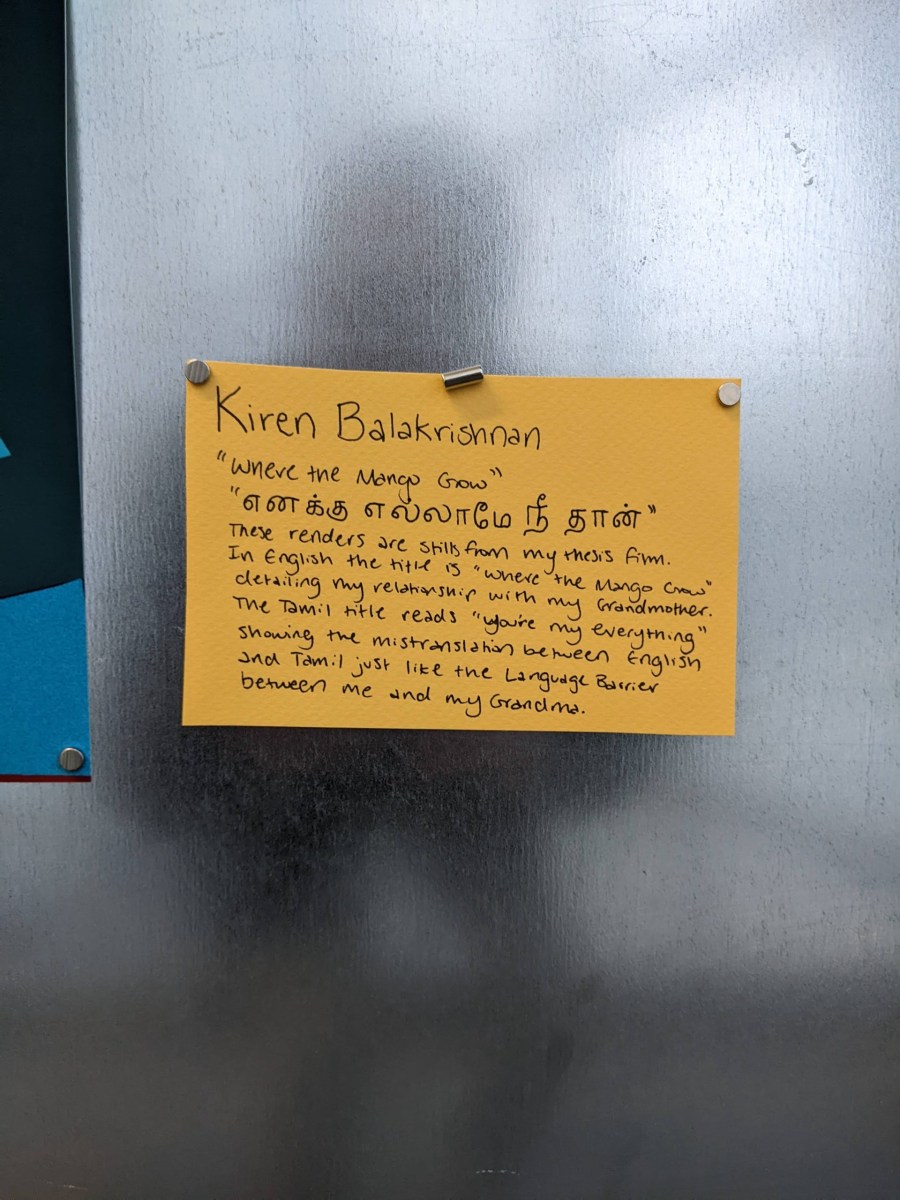 Kiren Balakrishnan
"Where the Mango Grow"
"எனக்கு எல்லாமே நீ தான்"
These renders are stills from my thesis film.
In English the title is "Where the Mango Grow"
detailing my relationship with my Grandmother.
The Tamil title reads "you're my everything"
showing the mistranslation between English
and Tamil just like the Language Barrier
between me and my Grandma.